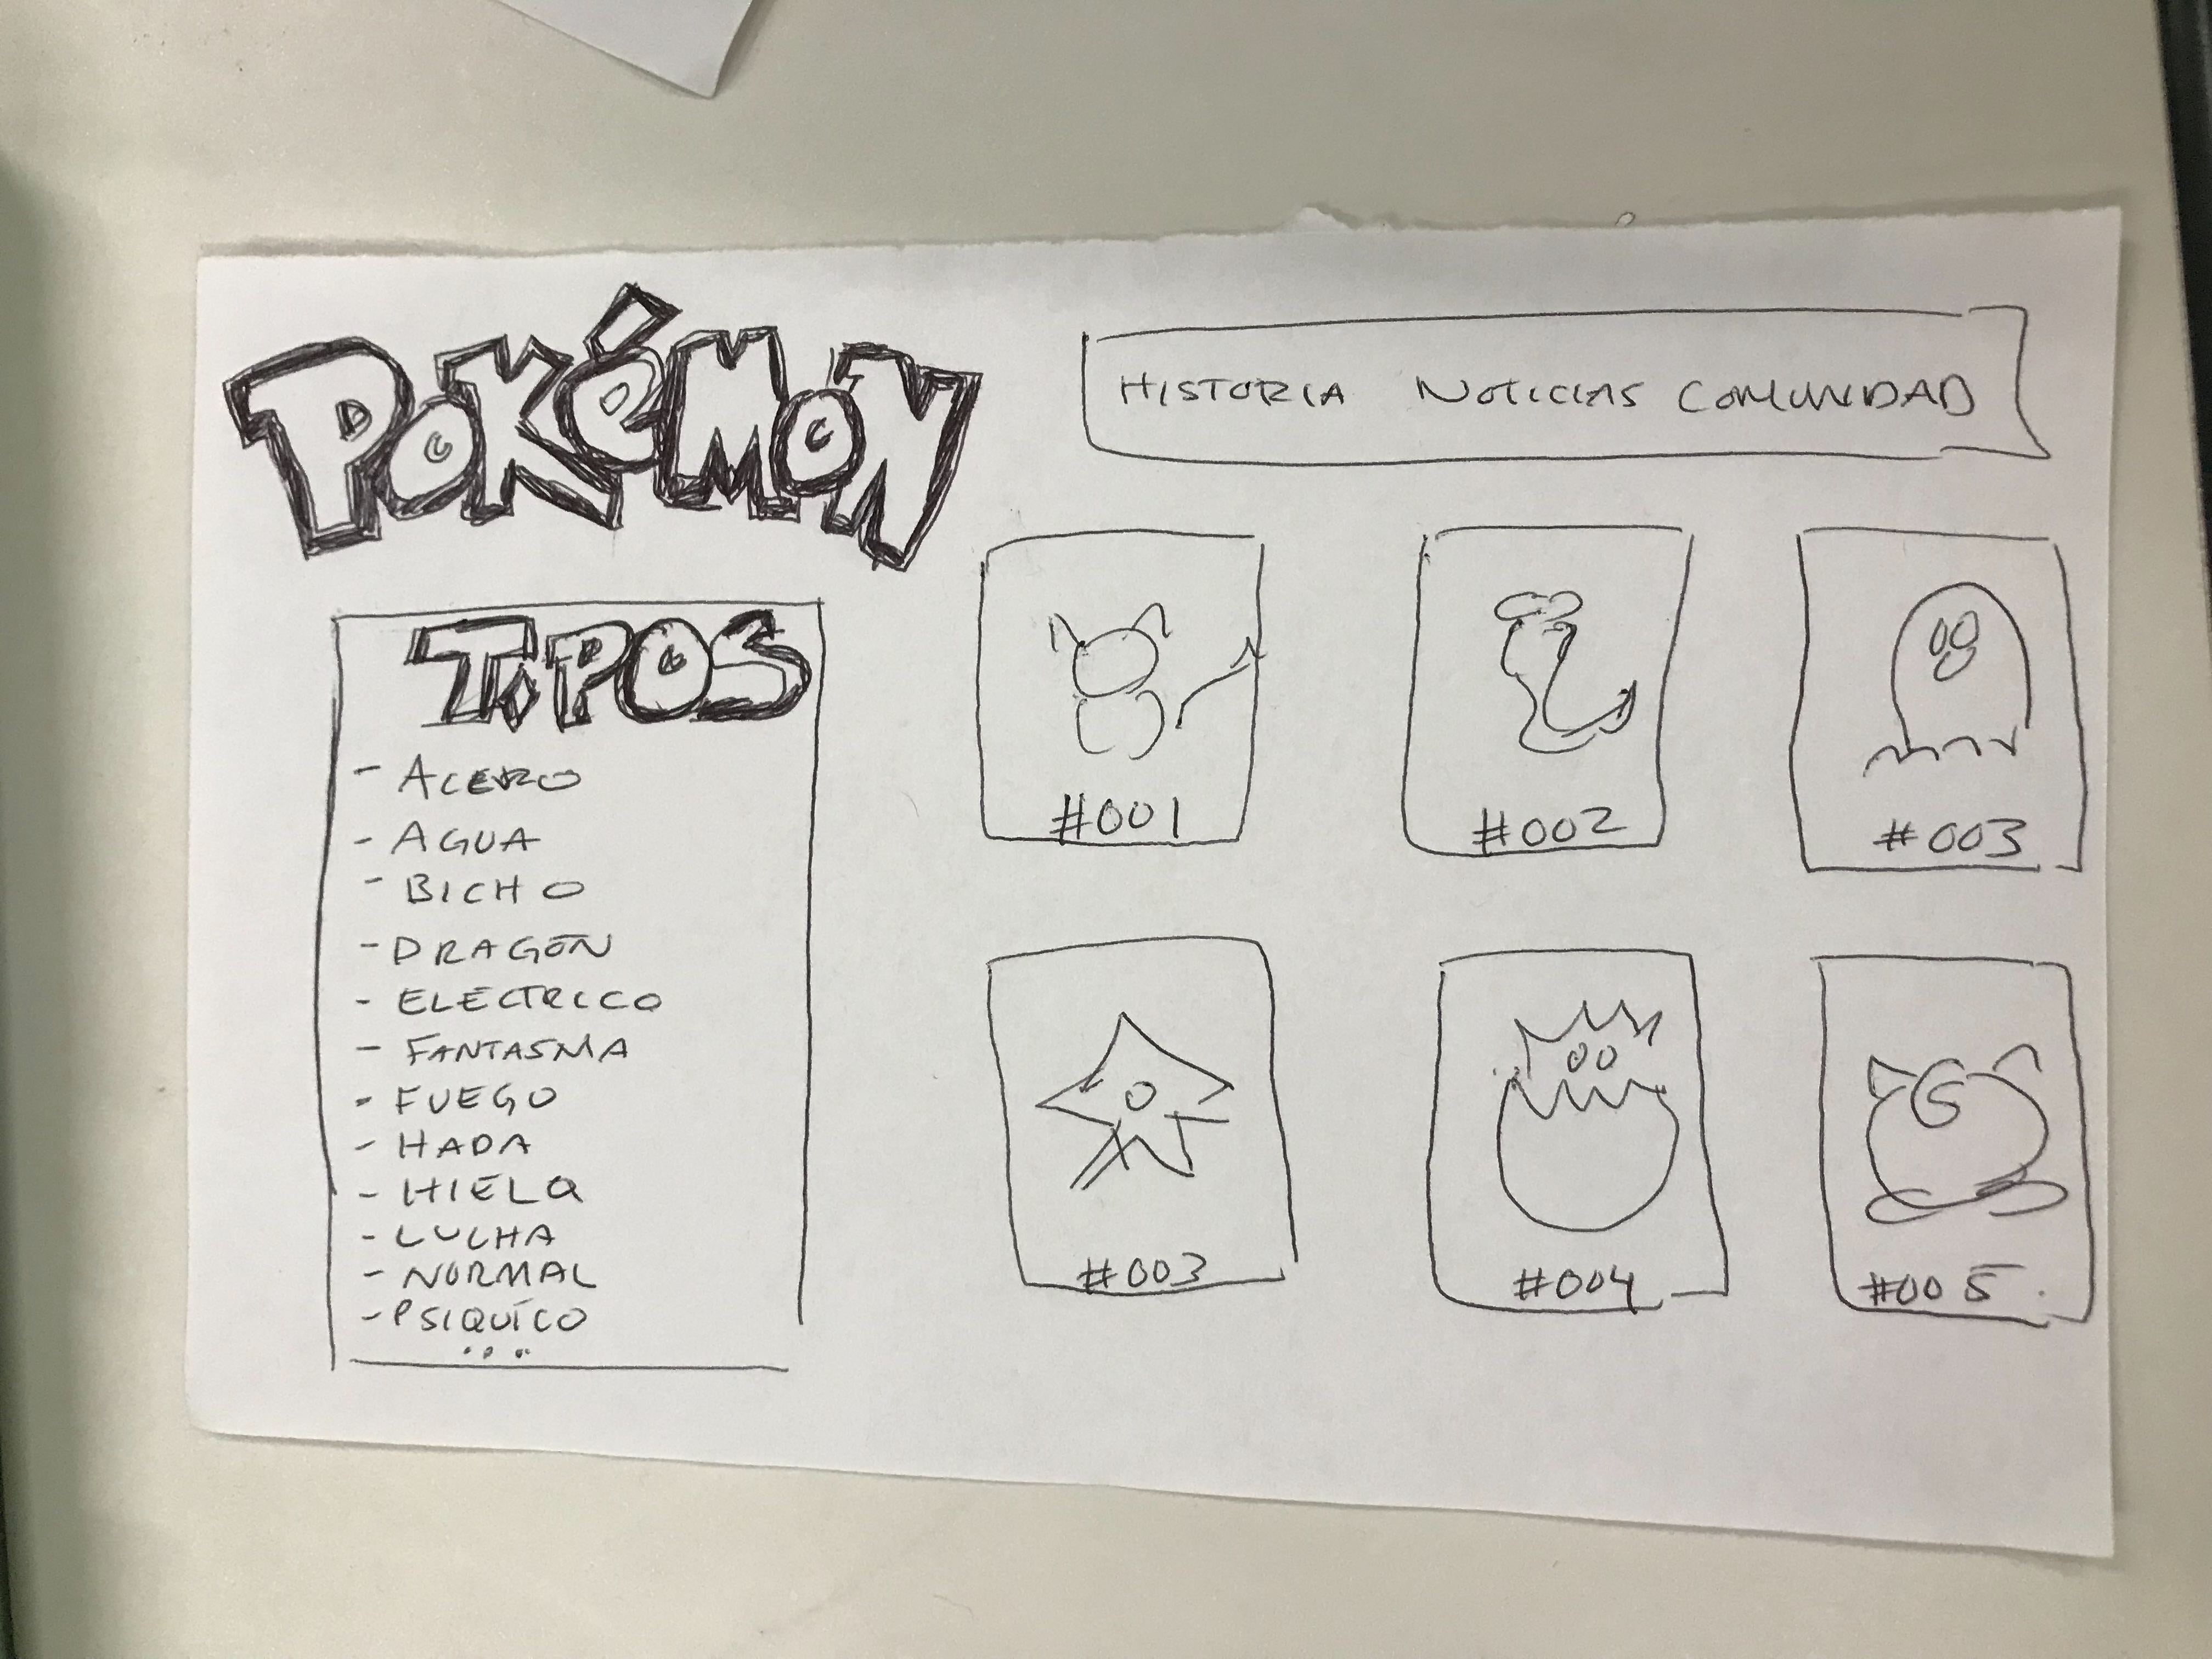 POKéMON
HISTORIA NOTICIAS COMUNIDAD
TIPOS
- ACERO
- AGUA
- BICHO
- DRAGÓN
- ELÉCTRICO
- FANTASMA
- FUEGO
- HADA
- HIELO
- LUCHA
- NORMAL
- PSIQUÍCO
...
#001 #002 #003
#003 #004 #005